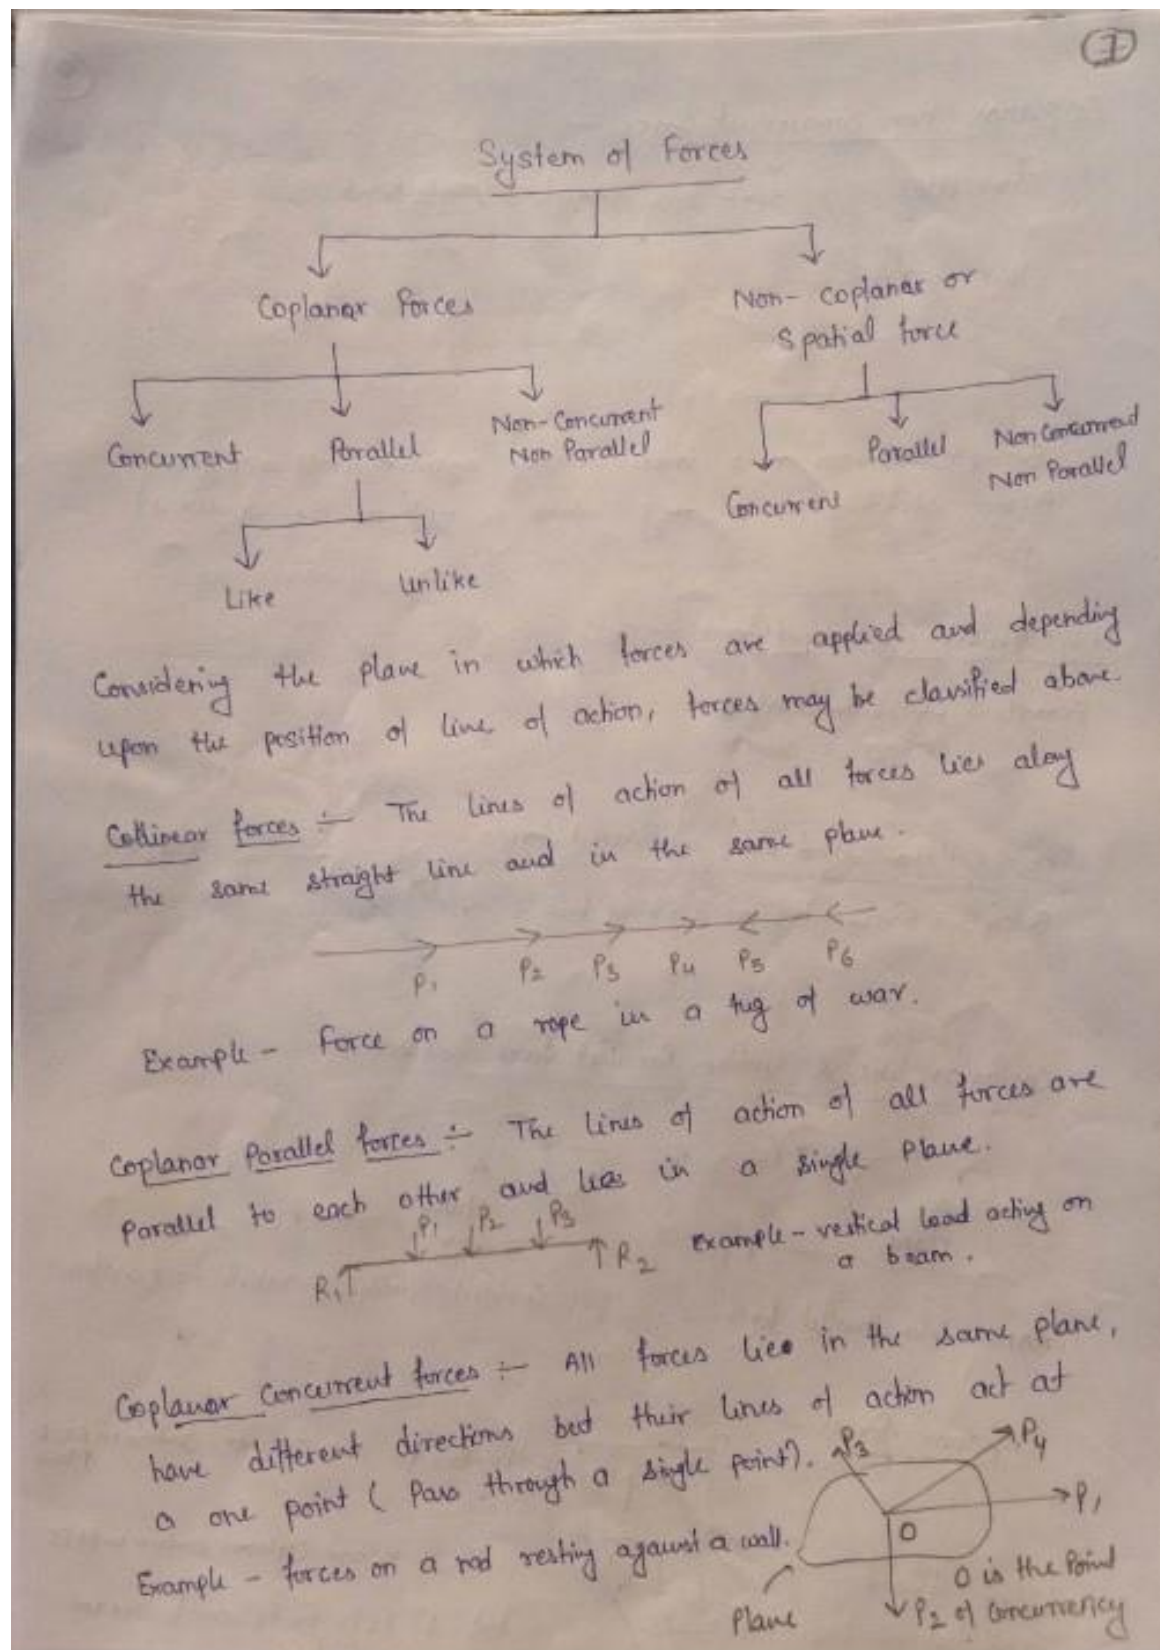 1
System of Forces
Coplanar Forces
Non- Coplanar or
Spatial force
Concurrent
Parallel
Non-Concurrent
Non Parallel
Concurrent
Parallel
Non Concurrend
Non Parallel
Like
Unlike
Considering the plane in which forces are applied and depending
upon the position of line of action, forces may be classified above.
Collinear forces :- The lines of action of all forces lies along
the same straight line and in the same plane.
P1 P2 P3 P4 P5 P6
Example - Force on a rope in a tug of war.
Coplanar Parallel forces :- The lines of action of all forces are
Parallel to each other and lies in a single Plane.
P1 P2 P3
R1 R2
Example - vertical load acting on
a beam.
Coplanar Concurrent forces :- All forces lies in the same plane,
have different directions but their lines of action act at
a one point ( Pass through a single point).
P3 P4
P1
O
Example - forces on a rod resting against a wall.
O is the Point
of Concurrency
P2
Plane